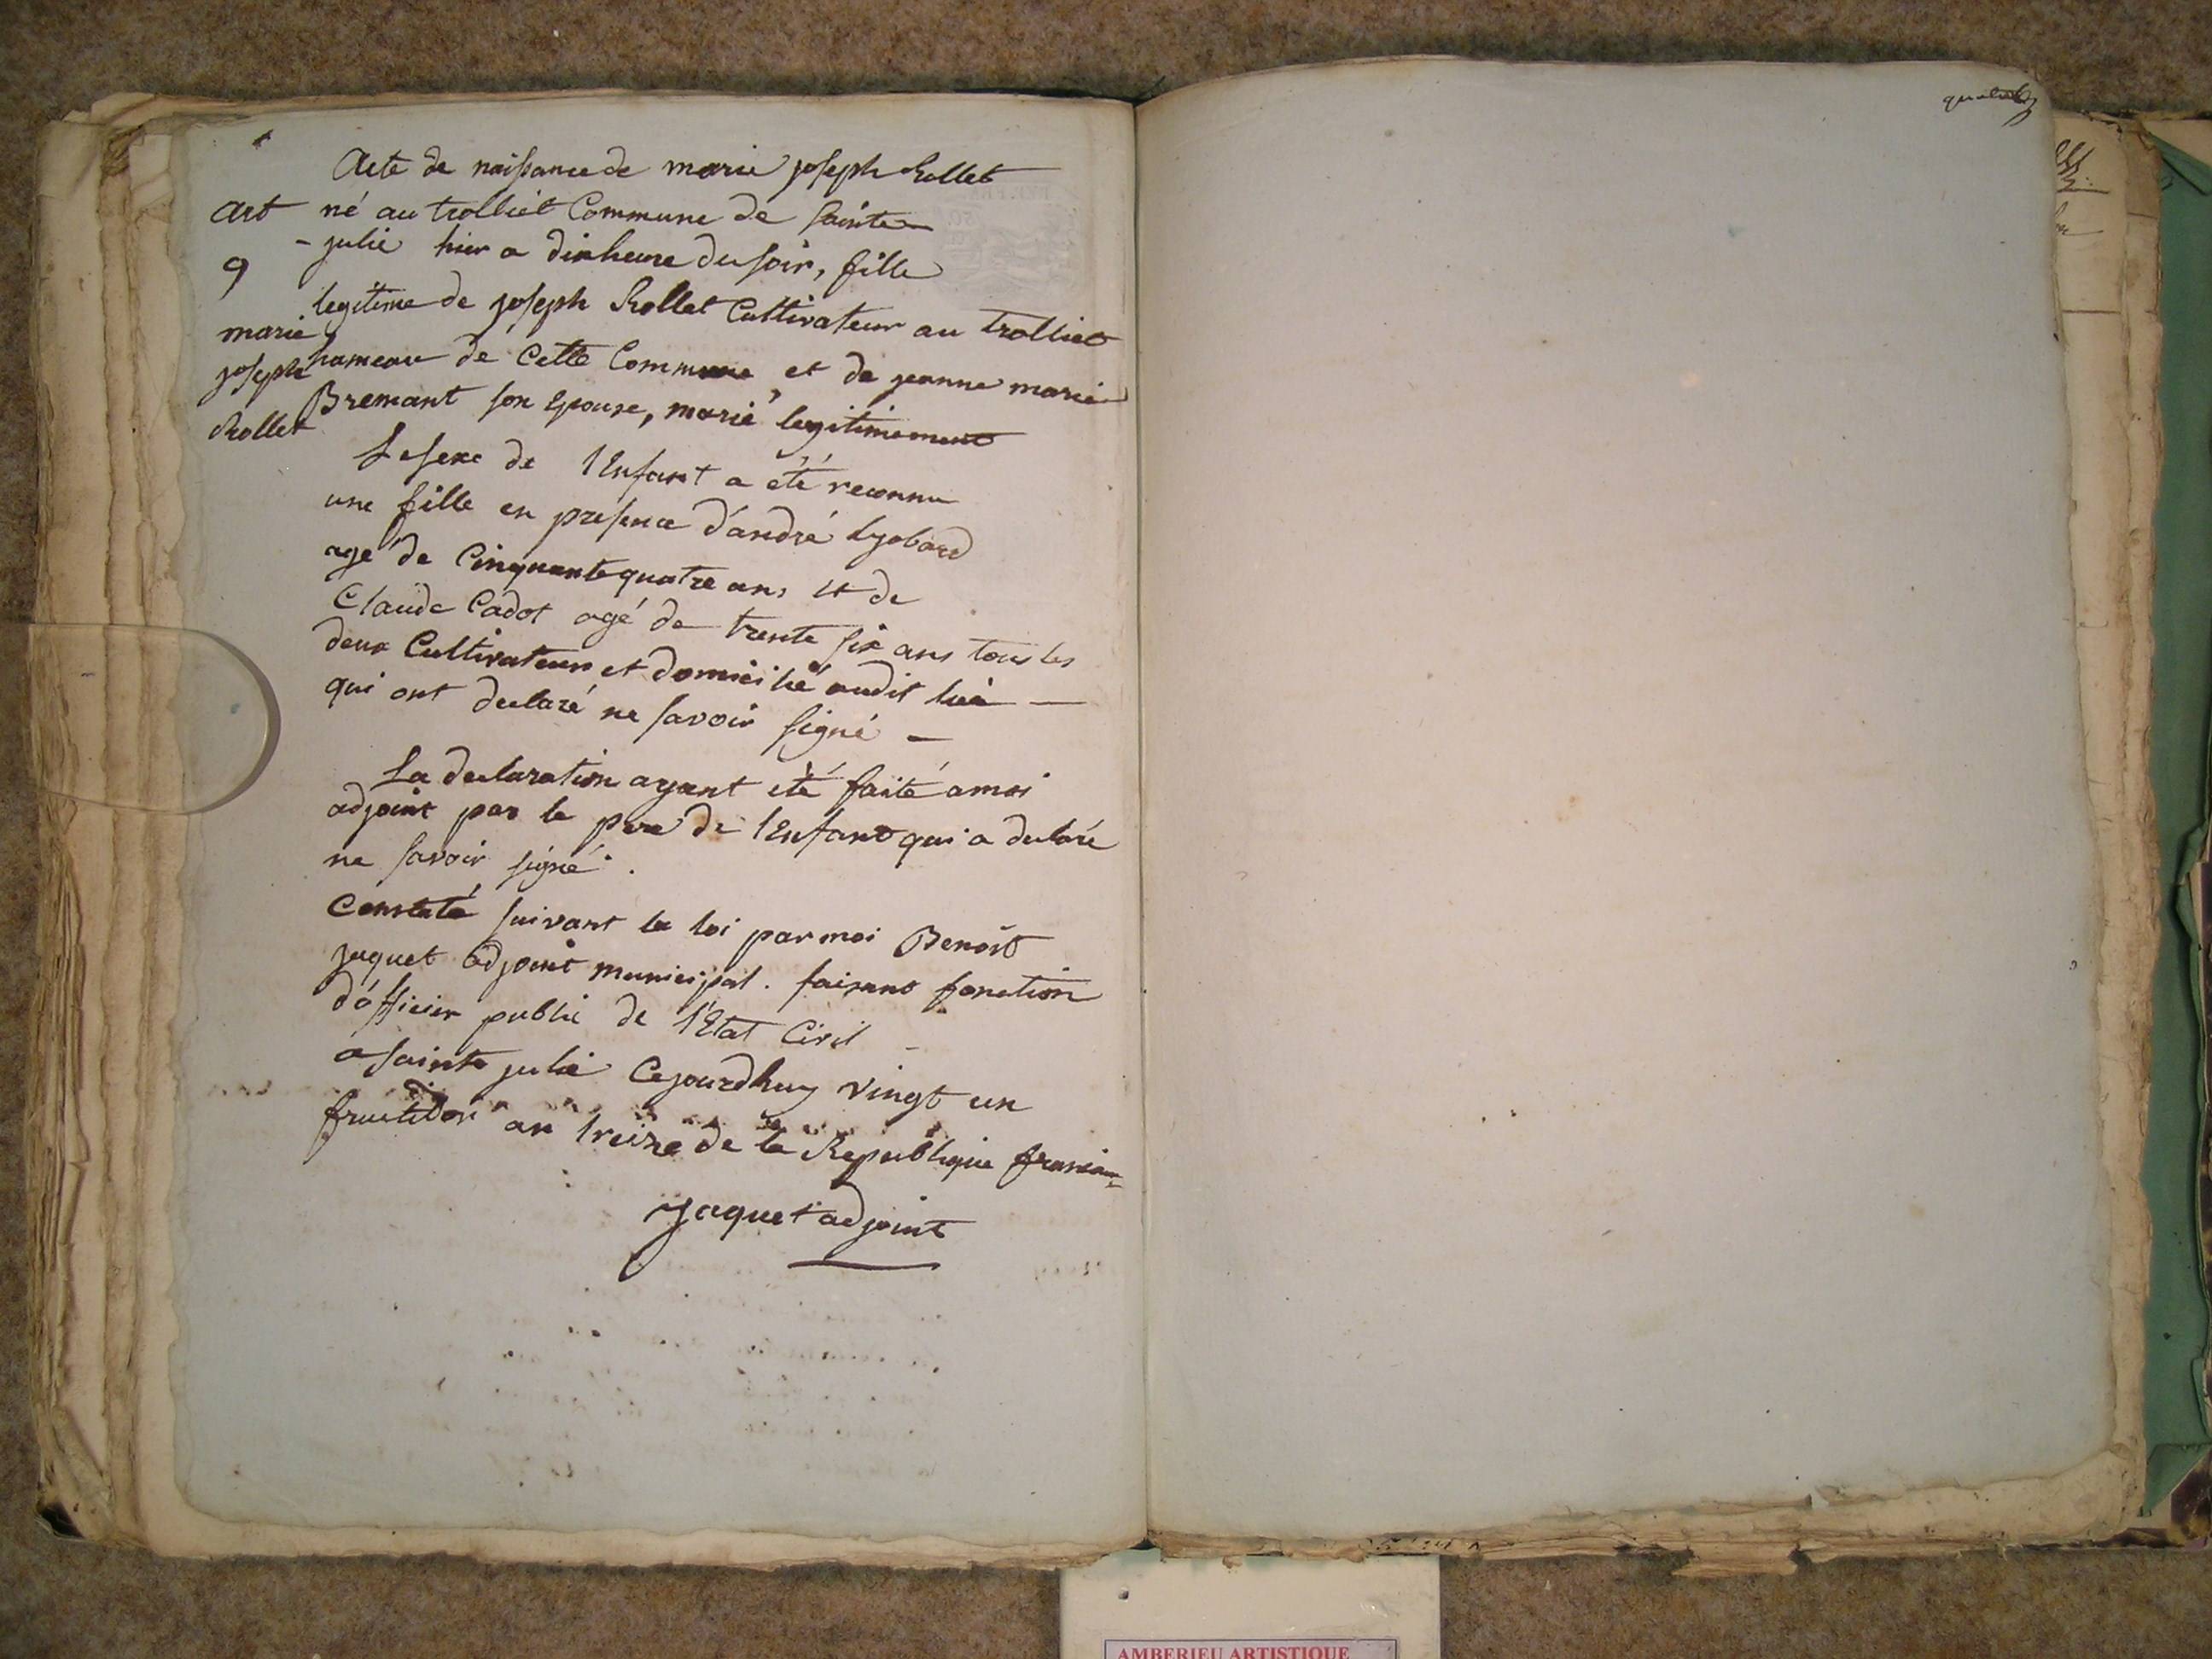 Acte de naissance de marie joseph Rollet
art né au trolliet Commune de sainte
9 - julie hier a dix heure du soir, fille
legitime de joseph Rollet Cultivateur au trolliet
marie
joseph hameau de Cette Commune et de jeanne marie
Rollet Bremant son Epouse, marié legitimement
Le sexe de l'Enfant a été reconnu
une fille en presence d'andré Lyobard
agé de Cinquante quatre ans et de
Claude Cadot agé de trente six ans tous les
deux Cultivateurs et domicilié audit lieu
qui ont declaré ne savoir signé -
La declaration ayant été faité a moi
adjoint par le pere de l'Enfant qui a declaré
ne savoir signé.
Constaté suivant la loi par moi Benoit
jaquet adjoint municipal. faisant fonction
d'officier public de l'Etat Civil -
a sainte julie Cejourdhuy vingt un
fructidor an treize de la Republique
Jaquet adjoint
AMBERIEU ARTISTIQUE